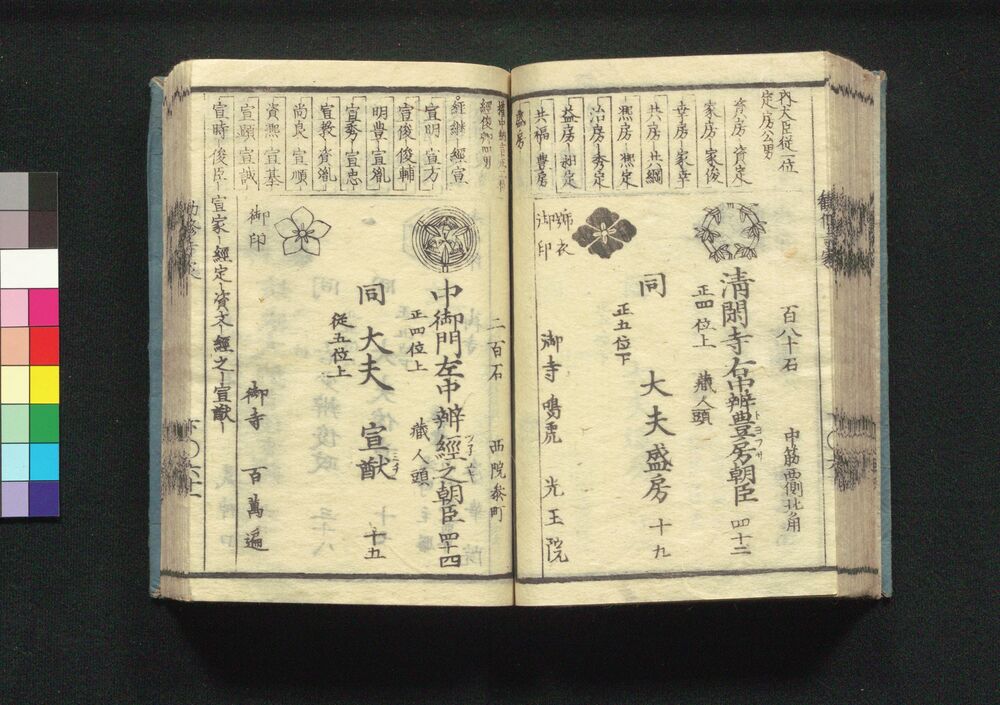 内大臣従一位
定房公男
資房 資定
家房 家俊
幸房 家幸
共房 共綱
熈房 熈定
治房 秀定
益房 昶定
共福 豊房
盛房
百八十石
中筋西側北角
清閑寺右中辨豊房朝臣 四十二
トヨフサ
正四位上 蔵人頭
同 大夫盛房 十九
正五位下
号衣
御印
御寺 鳴虎 光王院
権中納言
経俊卿四男
経継 経宣
宣明 宣方
宣俊 俊輔
明豊 宣胤
宣秀 宣忠
宣教 資胤
尚良 宣順
資熈 宣基
宣顕 宣誠
宣時 俊臣 宣家 經定 資文 經之 宣猷
二百石
西院参町
中御門左中辨經之朝臣 四十四
ツネユキ
正四位上 蔵人頭
同 大夫 宣猷 十五
従五位上
御印
御寺 百萬遍